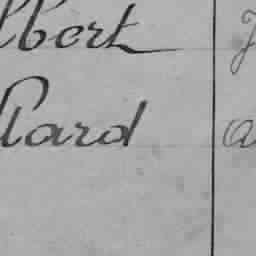 lbert J
lard a